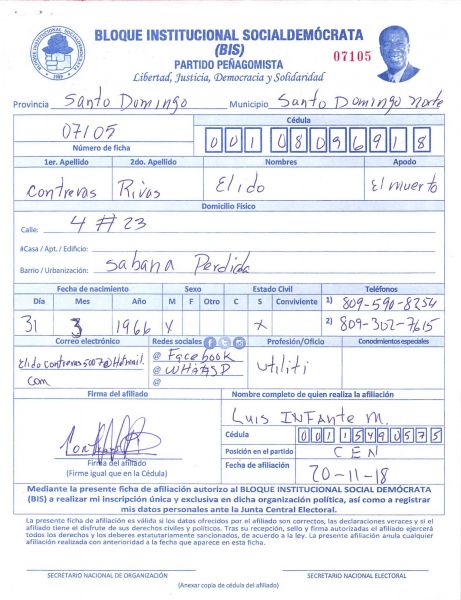 BLOQUE INSTITUCIONAL SOCIALDEMÓCRATA
(BIS)
PARTIDO PEÑAGOMISTA
07105
Libertad, Justicia, Democracia y Solidaridad
Provincia Santo Domingo Municipio Santo Domingo Norte
07105
Número de ficha
Cédula
001 0809691 8
1er. Apellido 2do. Apellido Nombres Apodo
Contreras Rivas Elido El muerto
Domicilio Físico
Calle: 4 # 23
#Casa / Apt. / Edificio:
Barrio / Urbanización: Sabana Perdida
Fecha de nacimiento Sexo Estado Civil Teléfonos
Día Mes Año M F Otro C S Conviviente 1) 809-590-8254
31 3 1966 X X 2) 809-302-7615
Correo electrónico Redes sociales Profesión/Oficio Conocimientos especiales
Elidocontreras5007@Hotmail.
com
@ Facebook
@ WHASAP
@
Utiliti
Firma del afiliado Nombre completo de quien realiza la afiliación
Luis INFante M.
Cédula 00115490575
Posición en el partido CEN
Fecha de afiliación 20-11-18
Firma del afiliado
(Firme igual que en la Cédula)
Mediante la presente ficha de afiliación autorizo al BLOQUE INSTITUCIONAL SOCIAL DEMÓCRATA
(BIS) a realizar mi inscripción única y exclusiva en dicha organización política, así como a registrar
mis datos personales ante la Junta Central Electoral.
La presente ficha de afiliación es válida si los datos ofrecidos por el afiliado son correctos, las declaraciones veraces y si el
afiliado tiene el disfrute de sus derechos civiles y políticos. Tras su recepción, sello y firma autorizadas el afiliado ejercerá
todos los derechos y los deberes estatutariamente sancionados, de acuerdo a la ley. La presente afiliación anula cualquier
afiliación realizada con anterioridad a la fecha que aparece en esta ficha.
SECRETARIO NACIONAL DE ORGANIZACIÓN SECRETARIO NACIONAL ELECTORAL
(Anexar copia de cédula del afiliado)